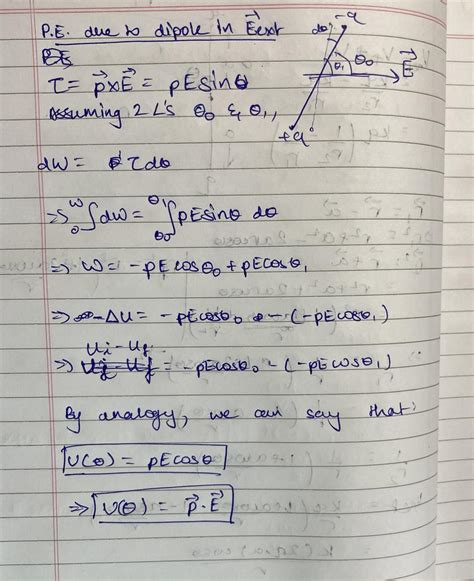 P.E. due to dipole in E⃗ext
τ = p⃗×E⃗ = pEsinθ
Assuming 2 L's θ₀ & θ₁,
dW = τdθ
⇒ ₀∫ᵂ dW = ∫θ₀^θ₁ pEsinθ dθ
⇒ W = -pEcosθ₀ + pEcosθ₁
⇒ -ΔU = -pEcosθ₀ - (-pEcosθ₁)
Ui - Uf
⇒ = -pEcosθ₀ - (-pEcosθ₁)
By analogy, we can say that:
U(θ) = pEcosθ
⇒ U(θ) = p⃗.E⃗
-q
dθ
θ₁
θ₀
E⃗
+q